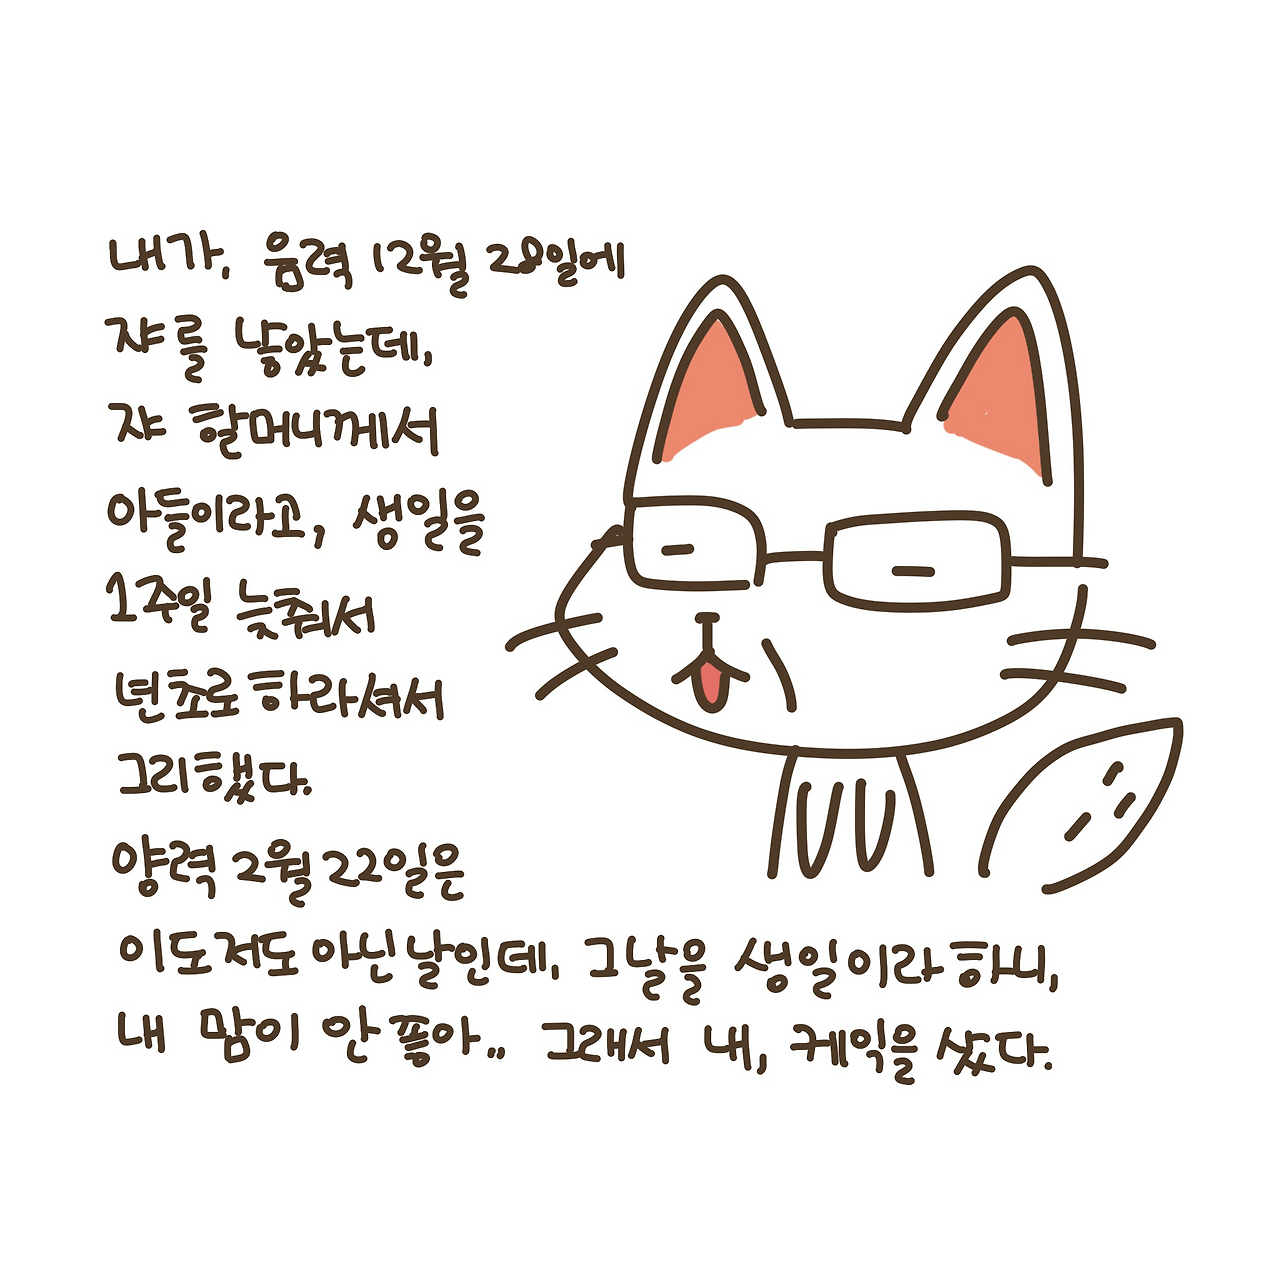 내가, 음력 12월 28일에
쟈를 낳았는데,
쟈 할머니께서
아들이라고, 생일을
1주일 늦춰서
년초로 하라셔서
그리했다.
양력 2월 22일은
이도저도 아닌날인데, 그날을 생일이라하니,
내 맘이 안 좋아.. 그래서 내, 케익을 샀다.